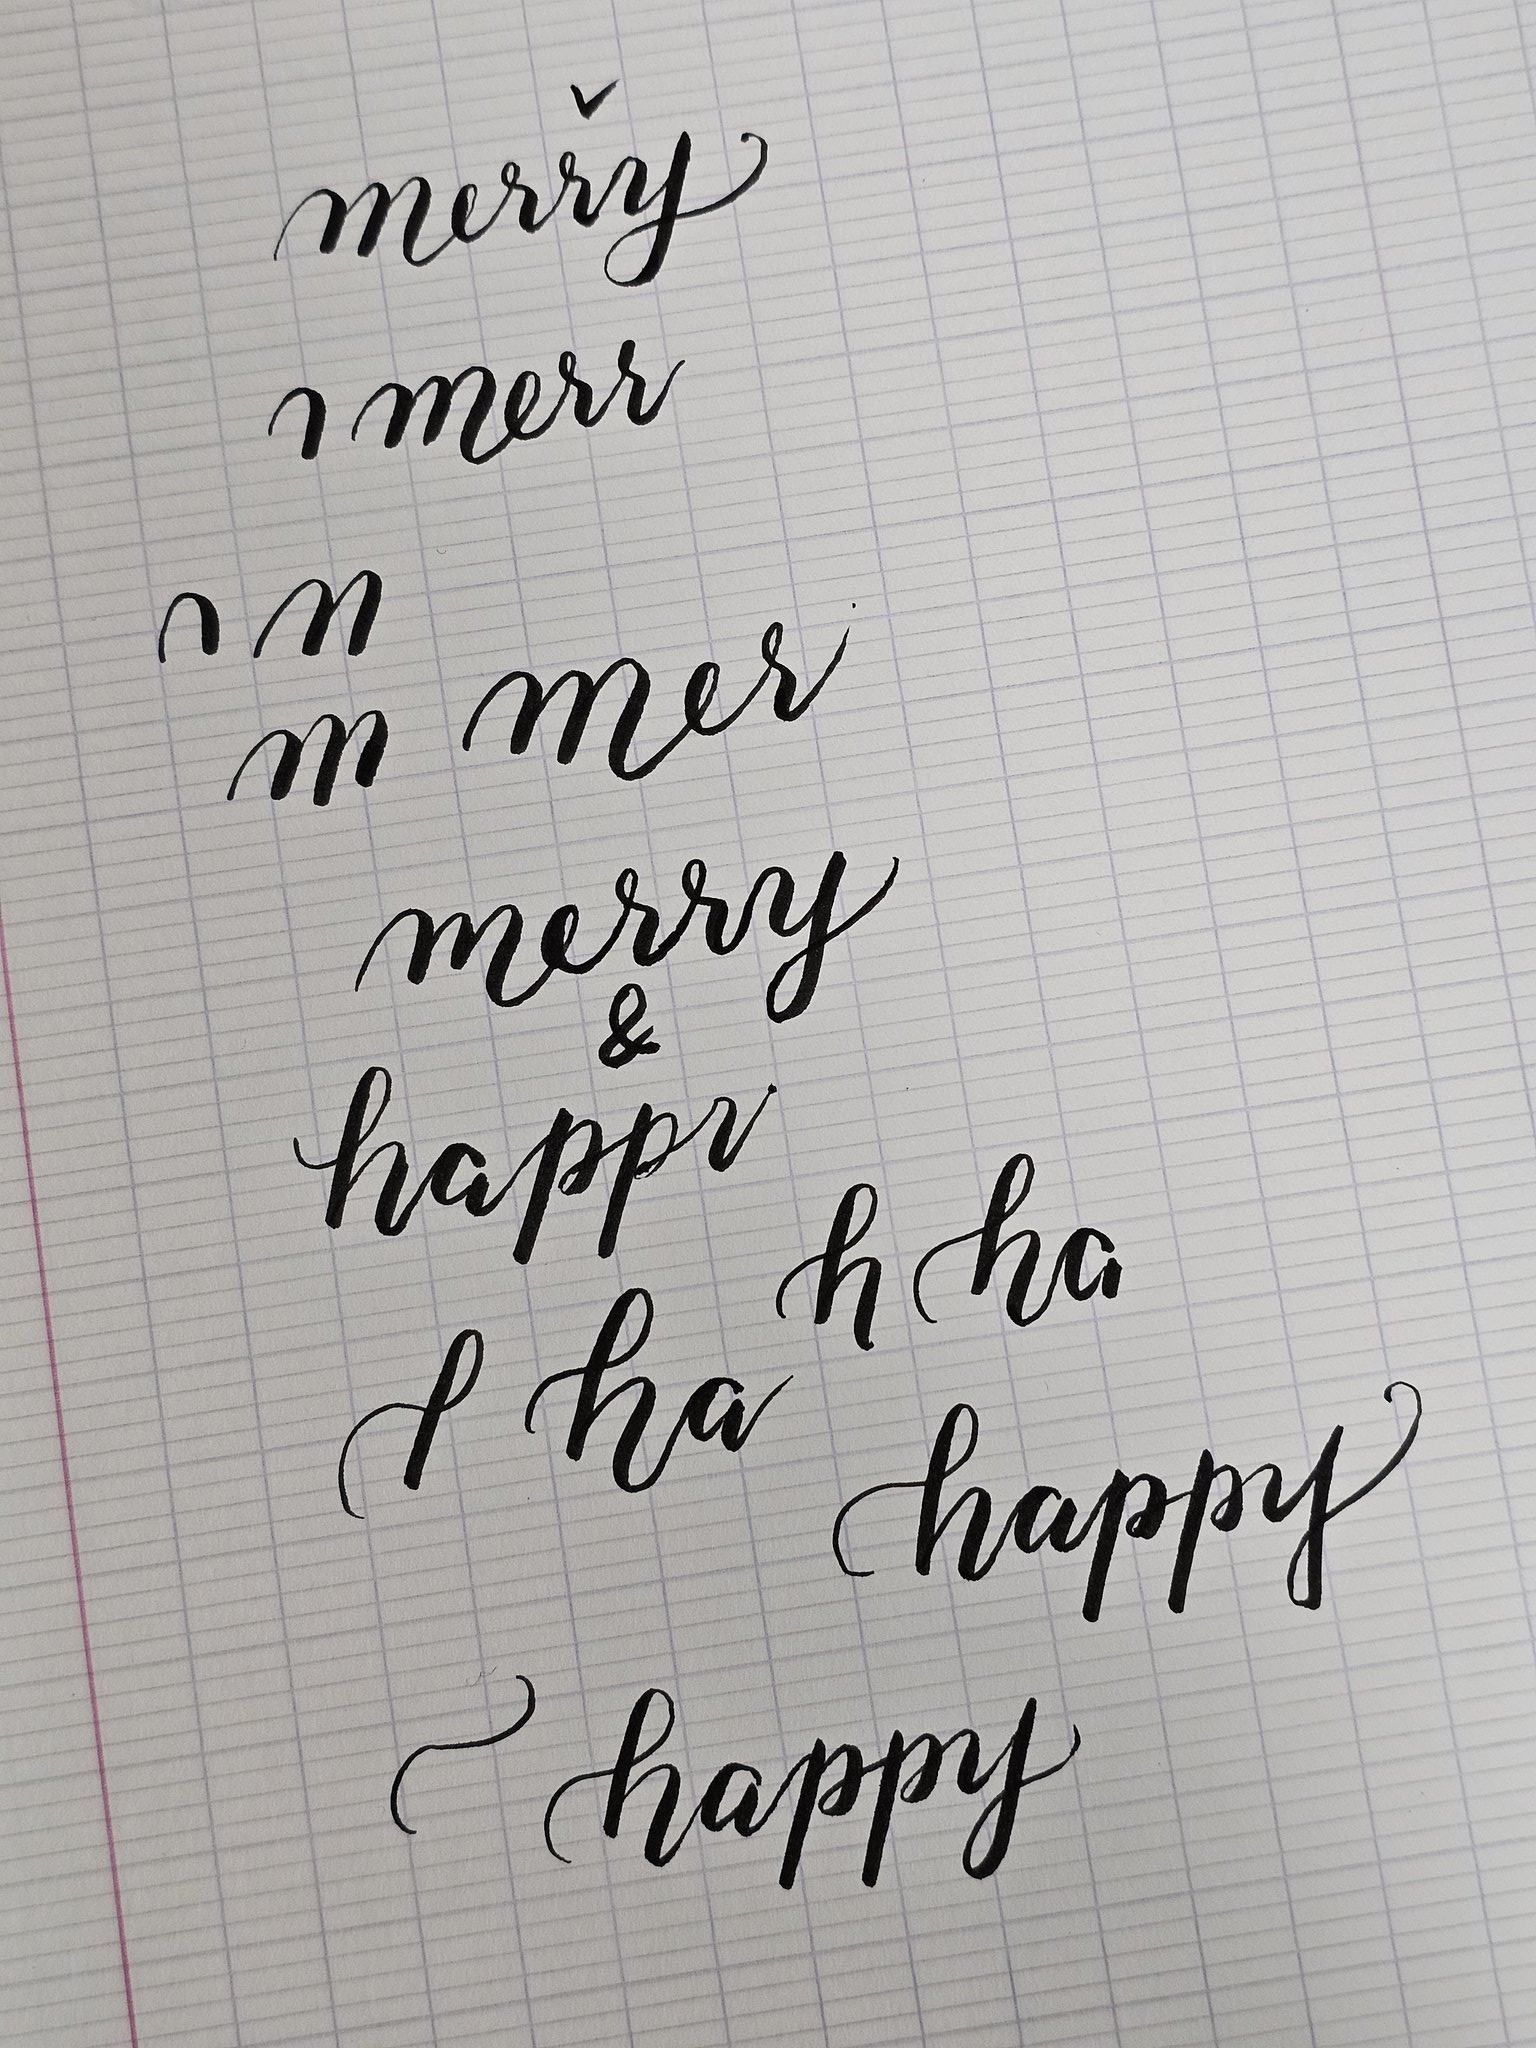 merry
merr
n
m mer
merry
&
happ
h ha
ha
happy
happy